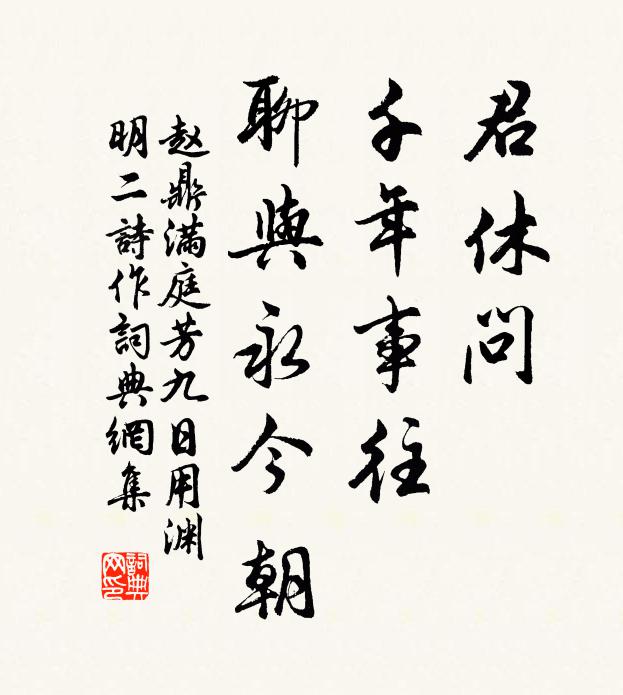 君休问
千年事往
聊與永今朝
赵鼎满庭芳九日用渊
明二詩作詞典網集
詞典網印